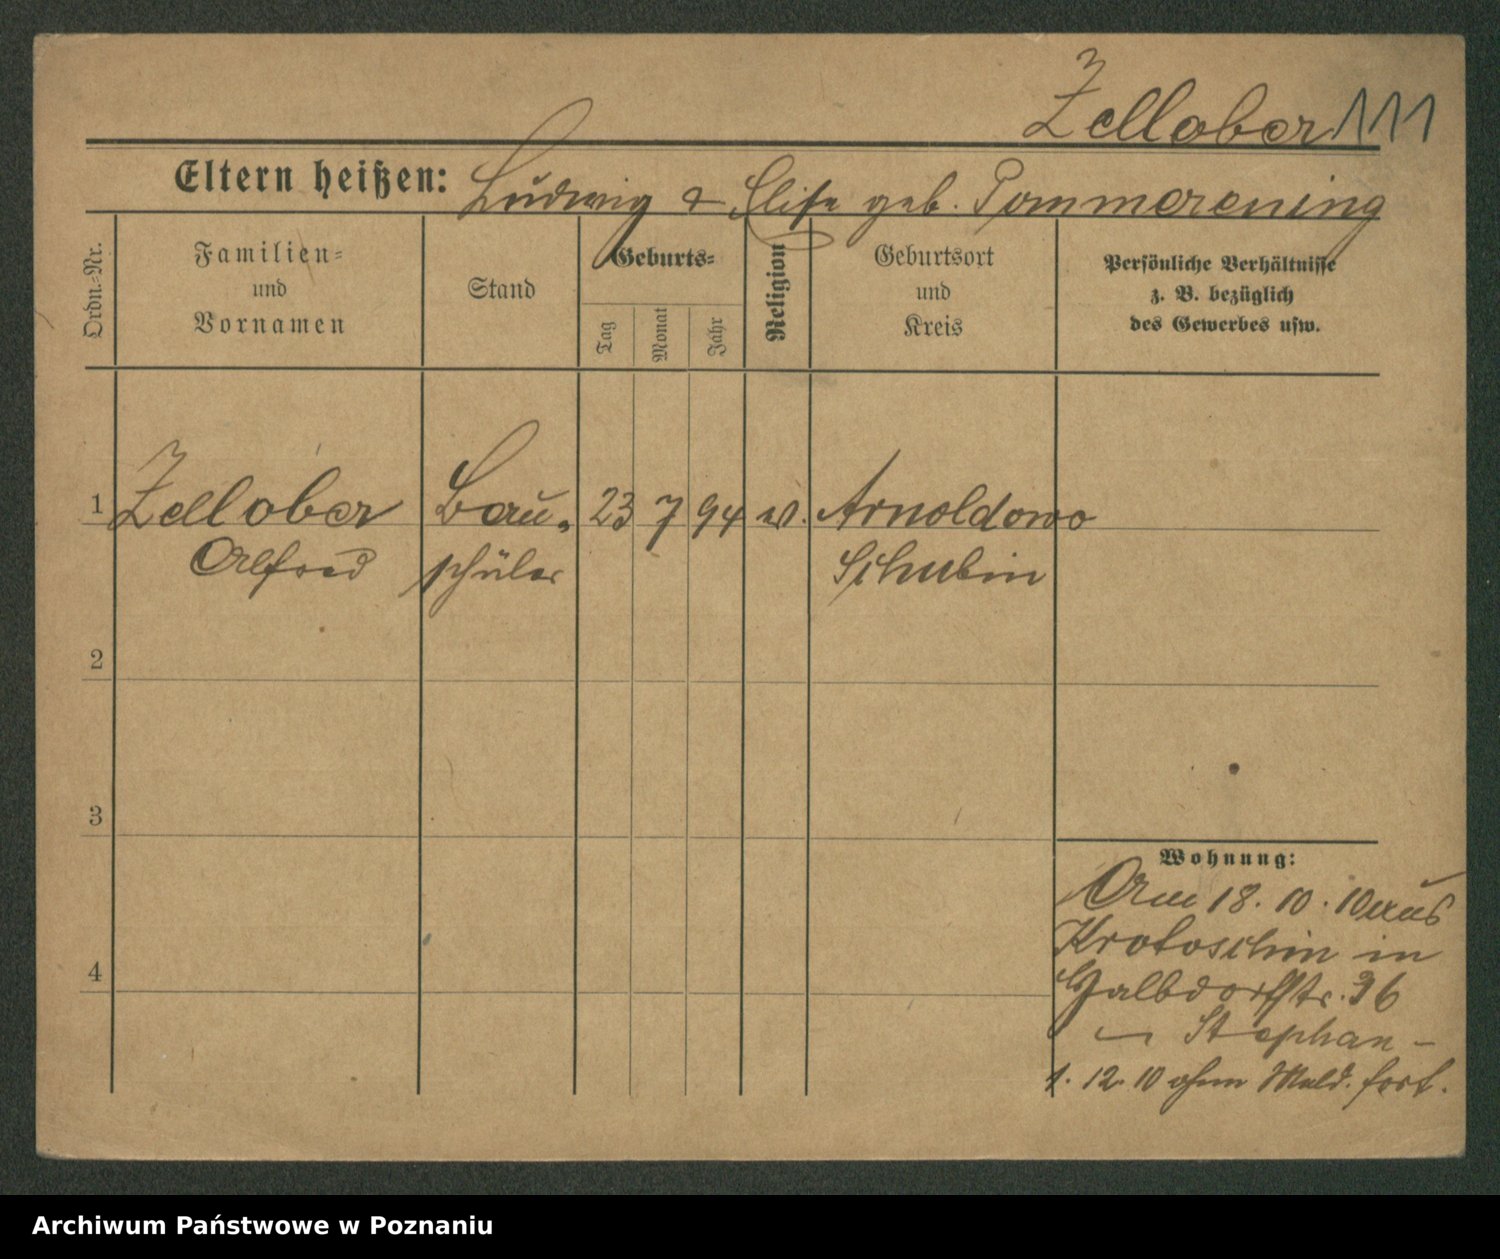 Zellober 111
Eltern heißen: Ludwig & Elise geb. Pommerening
Ordn.-Nr.
Familien-
und
Vornamen
Stand
Geburts-
Tag
Monat
Jahr
Religion
Geburtsort
und
Kreis
Persönliche Verhältnisse
z. B. bezüglich
des Gewerbes usw.
1 Zellober Bau- 23 7 94 ev. Arnoldowo
Alfred schüler Schubin
2
3
4
Wohnung:
Am 18. 10. 10 aus
Krotoschin in
Halbdorfstr. 36
— Stephan —
1. 12. 10 ohne Meld. fort.
Archiwum Państwowe w Poznaniu